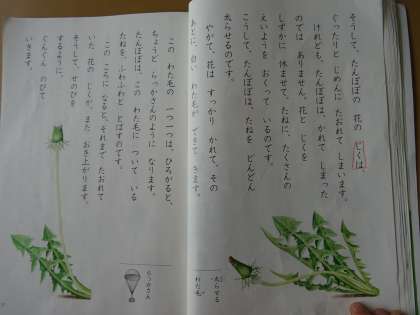 そうして、たんぽぽの 花の じくは、
ぐったりと じめんに たおれて しまいます。
けれども、たんぽぽは、かれて しまった
のでは ありません。花と じくを
しずかに 休ませて、たねに、たくさんの
えいようを おくって いるのです。
こうして、たんぽぽは、たねを どんどん
太らせるのです。
やがて、花は すっかり かれて、その
あとに、白い わた毛が できて きます。
太らせる
わた毛
この わた毛の 一つ一つは、ひろがると、
ちょうど らっかさんのように なります。
たんぽぽは、この わた毛に ついて いる
たねを、ふわふわと とばすのです。
この ころに なると、それまで たおれて
いた 花の じくが、また おき上がります。
そうして、せのびを
するように、
ぐんぐん のびて
いきます。
らっかさん